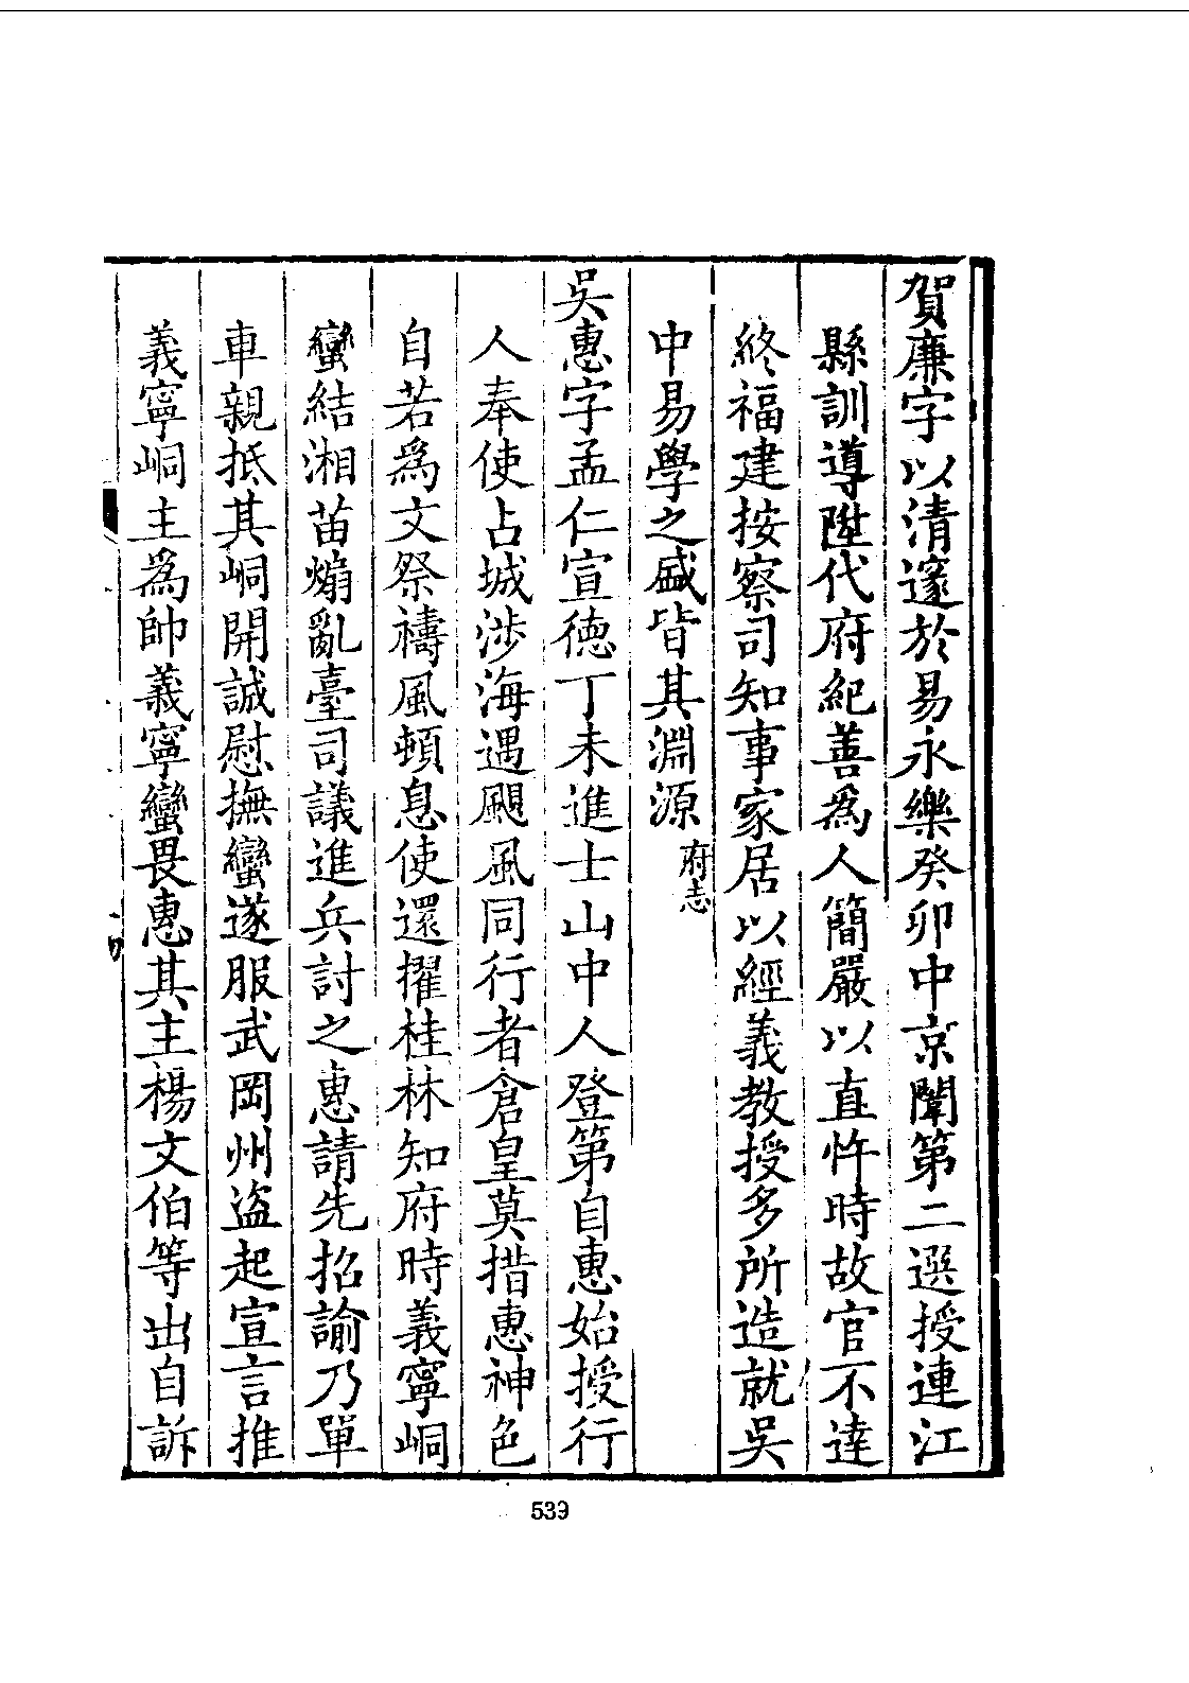 賀廉字以清邃於易永樂癸卯中京闈第二選授連江
縣訓導陞代府紀善爲人簡嚴以直忤時故官不達
終福建按察司知事家居以經義教授多所造就吳
中易學之盛皆其淵源府志
吳惠字孟仁宣德丁未進士山中人登第自惠始授行
人奉使占城涉海遇颶風同行者倉皇莫措惠神色
自若爲文祭禱風頓息使還擢桂林知府時義寧峒
蠻結湘苗煽亂臺司議進兵討之惠請先招諭乃單
車親抵其峒開誠慰撫蠻遂服武岡州盜起宣言推
義寧峒主爲帥義寧蠻畏惠其主楊文伯等出自訴
539